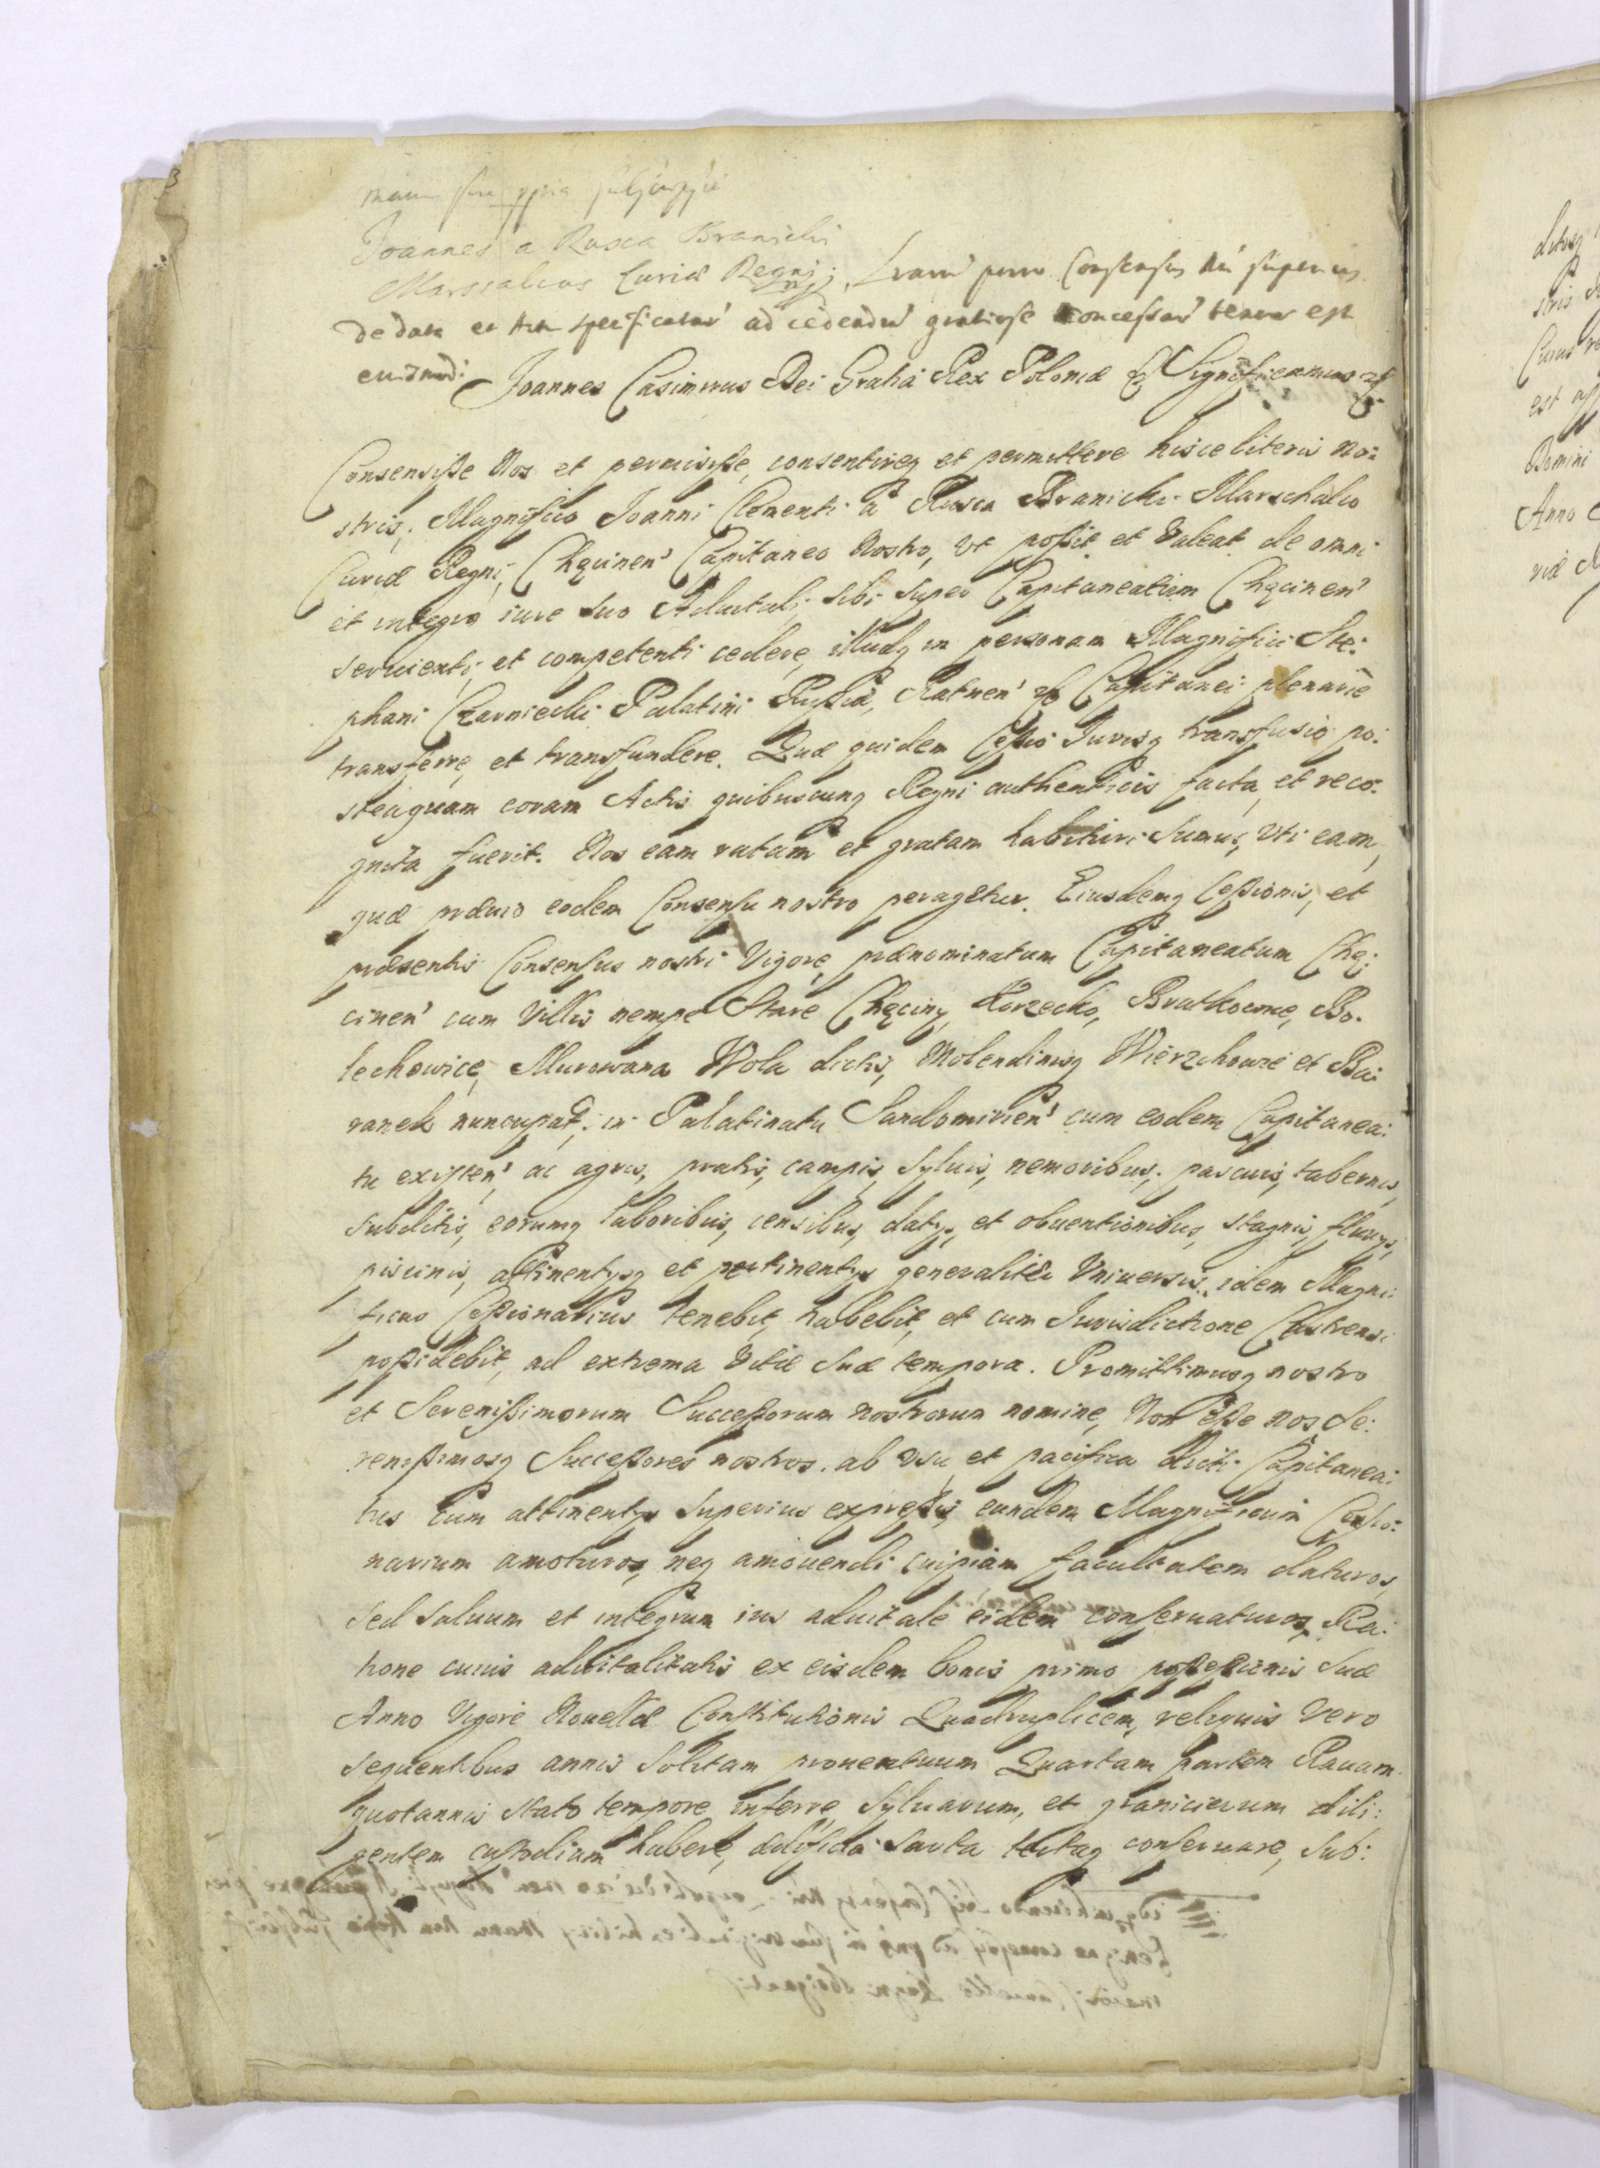 manu sua ppria subscripsi
Joannes a Rusca Branicki
Marssalcus Curiæ Regni. Lrarũ porro Consensus Nri superius
de data et Actu specificatarũ ad cedendũ gratiose concessarũ tenor est
eiusmodi: Joannes Casimirus Dei Gratia Rex Poloniæ & Significamus &
Consensisse Nos et permisisse, consentireq et permittere hisce literis No:
stris, Magnifico Joanni Clementi a Rusca Branicki Marschalco
Curiæ Regni, Chęcinen' Capitaneo Nostro, Vt possit et Valeat de omni
et integro iure suo Aduitali sibi super Capitaneatum Chęcinen'
seruienti, et competenti cedere, illudq in personam Magnifici Ste:
phani Czarniecki Palatini Russiæ, Ratnen' & Capitanei plenarie
transferre, et transfundere. Quæ quidem Cessio Jurisq transfusio po:
steaquam coram Actis quibuscunq Regni authenticis facta, et reco:
gnita fuerit. Nos eam ratam et gratam habituri Sumus, Vti eam,
quæ præuio eodem Consensu nostro peragetur. Eiusdemq Cessionis, et
præsentis Consensus nostri Vigore, prænominatum Capitaneatum Chę:
cinen' cum Villis nempe Stare Chęciny, Korzecko, Bratkowice, Bo:
lechowice, Murowana Wola dictis, Molendinisq Wierzchowie et Ba:
ranek nuncupat, in Palatinatu Sandomirien' cum eodem Capitanea:
tu existen', ac agris, pratis, campis, syluis, nemoribus, pascuis, tabernis,
Subditis, eorumq laboribus, censibus, datys, et obuentionibus, stagnis, fluuys,
piscinis, attinentysq et pertinentys generaliter Vniuersis, idem Magni:
ficus Cessionarius tenebit, habebit, et cum Jurisdictione Castrensi
possidebit, ad extrema Vitæ Suæ tempora. Promittimusq nostro
et Serenissimorum Successorum nostrorum nomine, Non esse nos, Se:
renissimosq Successores nostros, ab vsu, et pacifica dicti Capitanea:
tus cum attinentys superius expressis, eundem Magnificum Cessio:
narium amoturos, neq amouendi cuipiam facultatem daturos,
Sed Saluum et integrum ius aduitale eidem conseruaturos, Ra:
tione cuius aduitalitatis ex eisdem bonis primo possessionis Suæ
Anno Vigore Nouellæ Constitutionis Quadruplicem, reliquis Vero
sequentibus annis Solitam prouentuum Quartam partem Rauam
quotannis stato tempore inferre, Syluarum, et granicierum dili:
gentem custodiam habere, ædificia sarta tectaq conseruare, Sub: